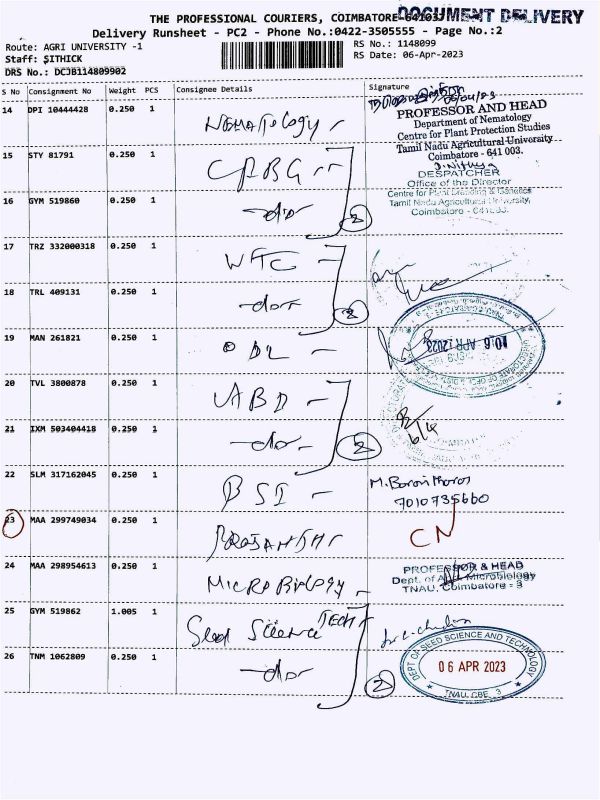 THE PROFESSIONAL COURIERS, COIMBATORE-641037
DOCUMENT DELIVERY
Delivery Runsheet - PC2 - Phone No.:0422-3505555 - Page No.:2
Route: AGRI UNIVERSITY -1
RS No.: 1148099
Staff: SITHICK
RS Date: 06-Apr-2023
DRS No.: DCJB114809902
S No Consignment No Weight PCS Consignee Details Signature
14 DPI 10444428 0.250 1 Nematology
PROFESSOR AND HEAD
Department of Nematology
Centre for Plant Protection Studies
Tamil Nadu Agricultural University
Coimbatore - 641 003.
15 STY 81791 0.250 1 CPBG
DESPATCHER
Office of the Director
Centre for Plant Breeding & Genetics
Tamil Nadu Agricultural University,
Coimbatore - 641003.
16 GYM 519860 0.250 1 -do- 2
17 TRZ 332000318 0.250 1 WTC
18 TRL 409131 0.250 1 -do- 2
19 MAN 261821 0.250 1 ODL
06 APR 2023
20 TVL 3800878 0.250 1 ABD
6/4
21 IXM 503404418 0.250 1 -do- 2
22 SLM 317162045 0.250 1 BSI
7010735660
23 MAA 299749034 0.250 1 PRASANTH
CN
24 MAA 298954613 0.250 1 MICROBIOLOGY
PROFESSOR & HEAD
Dept. of Agrl. Microbiology
TNAU, Coimbatore - 3
25 GYM 519862 1.005 1 Seed Science TECH
26 TNM 1062809 0.250 1 -do- 2
DEPT OF SEED SCIENCE AND TECHNOLOGY
06 APR 2023
TNAU, CBE. 3